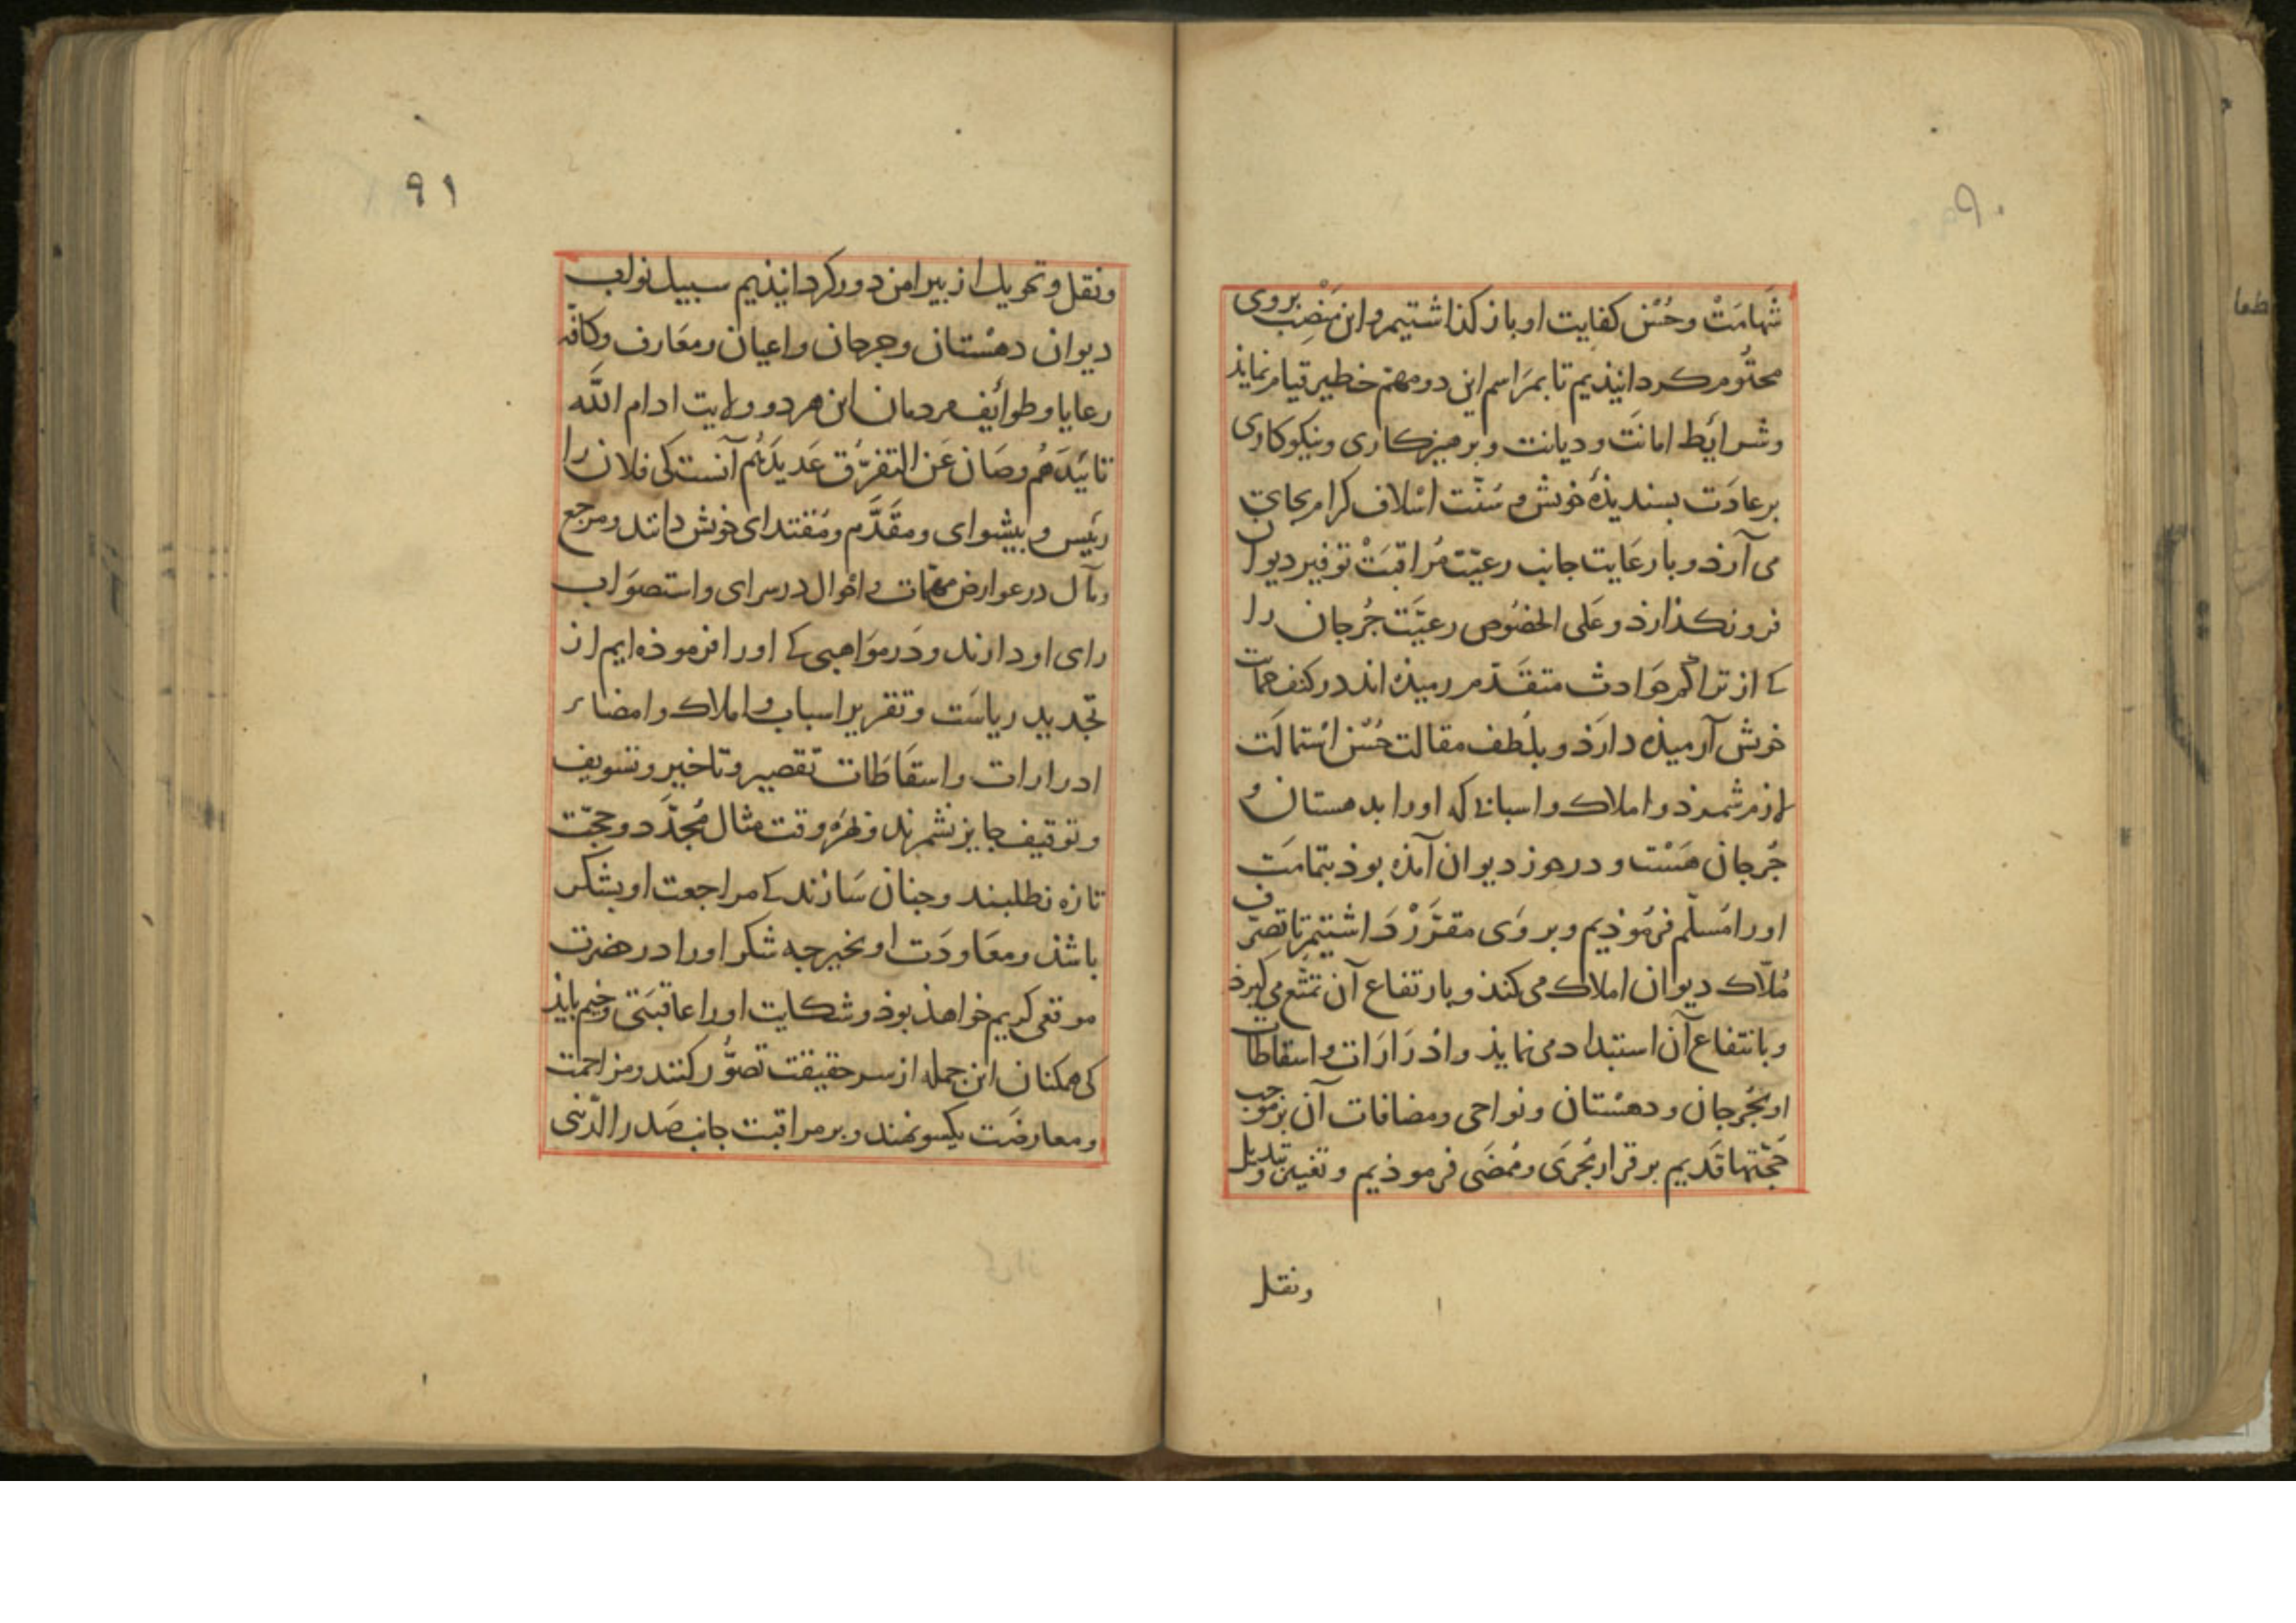 ۹۰
شَهامَتْ وحُسْن کفایت او باز کذاشتیم واین مَنْصِب بروی
محتُوم کردانیذیم تا بمرَاسم این دو مهمّ خطیر قیام نمایذ
وشرایَط امانَت ودیانت وبرهیزکاری ونیکوکاری
برعادَت بسندیذهٔ خویش و سُنّت اسْلاف کرام بجای
می آرذ و با رعَایت جانب رعیّت مُراقبَتْ توفیر دیوان
فرو نکذارذ وعَلی الخصُوص رعیَّت جُرجان را
کی از تراکم حَوادث متقَدّم رمیذه اند در کنف حمایت
خویش آرمیذه دارَذ و بلُطف مقالت حُسْن اسْتمالَت
لازم شمرذ و املاک واسبابی که اورا بدهستان و
جُرجان هَسْت و در حوز دیوان آمذه بوذ بتمامَت
اورا مُسلّم فرمُوذیم و بروَی مقرَّرْ دَاشتیم تا تصرّف
مُلّاک دیوان املاک می کنذ و بارتفاع آن تمتّع می کیرذ
و بانتفاع آن استبداد می نمایذ وادْرَارَات و اسقاطات
او بجُرجان و دهسْتان ونواحی ومضافات آن برموجب
حُجّتها قدیم برقرار مُجرَی ومُمضَی فرموذیم وتغییر وتبدیل
ونقل
۹۱
ونقل وتحویل از بیرامن دور کردانیذیم سبیل نواب
دیوان دهسْتان وجرجان واعیان ومعَارف وکافّه
رعایا وطوائِف مردمان این هر دو ولایت ادام اللّه
تائیدَهُم وصَان عَن التفرُّق عَدیدَهُم آنست کی فلان را
رئیس و بیشوای ومقَدَّم ومُقتدای خویش دانند ومرجع
ومآل در عوارض مهمّات و احْوال در سرای واستصوَاب
رای او دارند ودَر موَاهبی کی اورا فرموذه ایم از
تجدید ریاسَت وتقریر اسباب و املاک وامضاء
ادرارات واسقاطات تقصیر وتاخیر وتسویف
وتوقیف جایز نشمرند وبهرْ وقت مثال مُجدَّد وحجّت
تازه نطلبند وجنان سَازند کی مراجعت او بشکر
باشذ ومعَاودَت او بخیر جه شکر اورا در حضرت
موقعی کریم خواهذ بوذ وشکایت اورا عاقبَتی وخیم بایذ
کی همکنان این جمله از سر حقیقت تصوُّر کنند ومزاحمت
ومعارضَت یکسو نهند و بر مراقبت جانب صَدر الدّینی